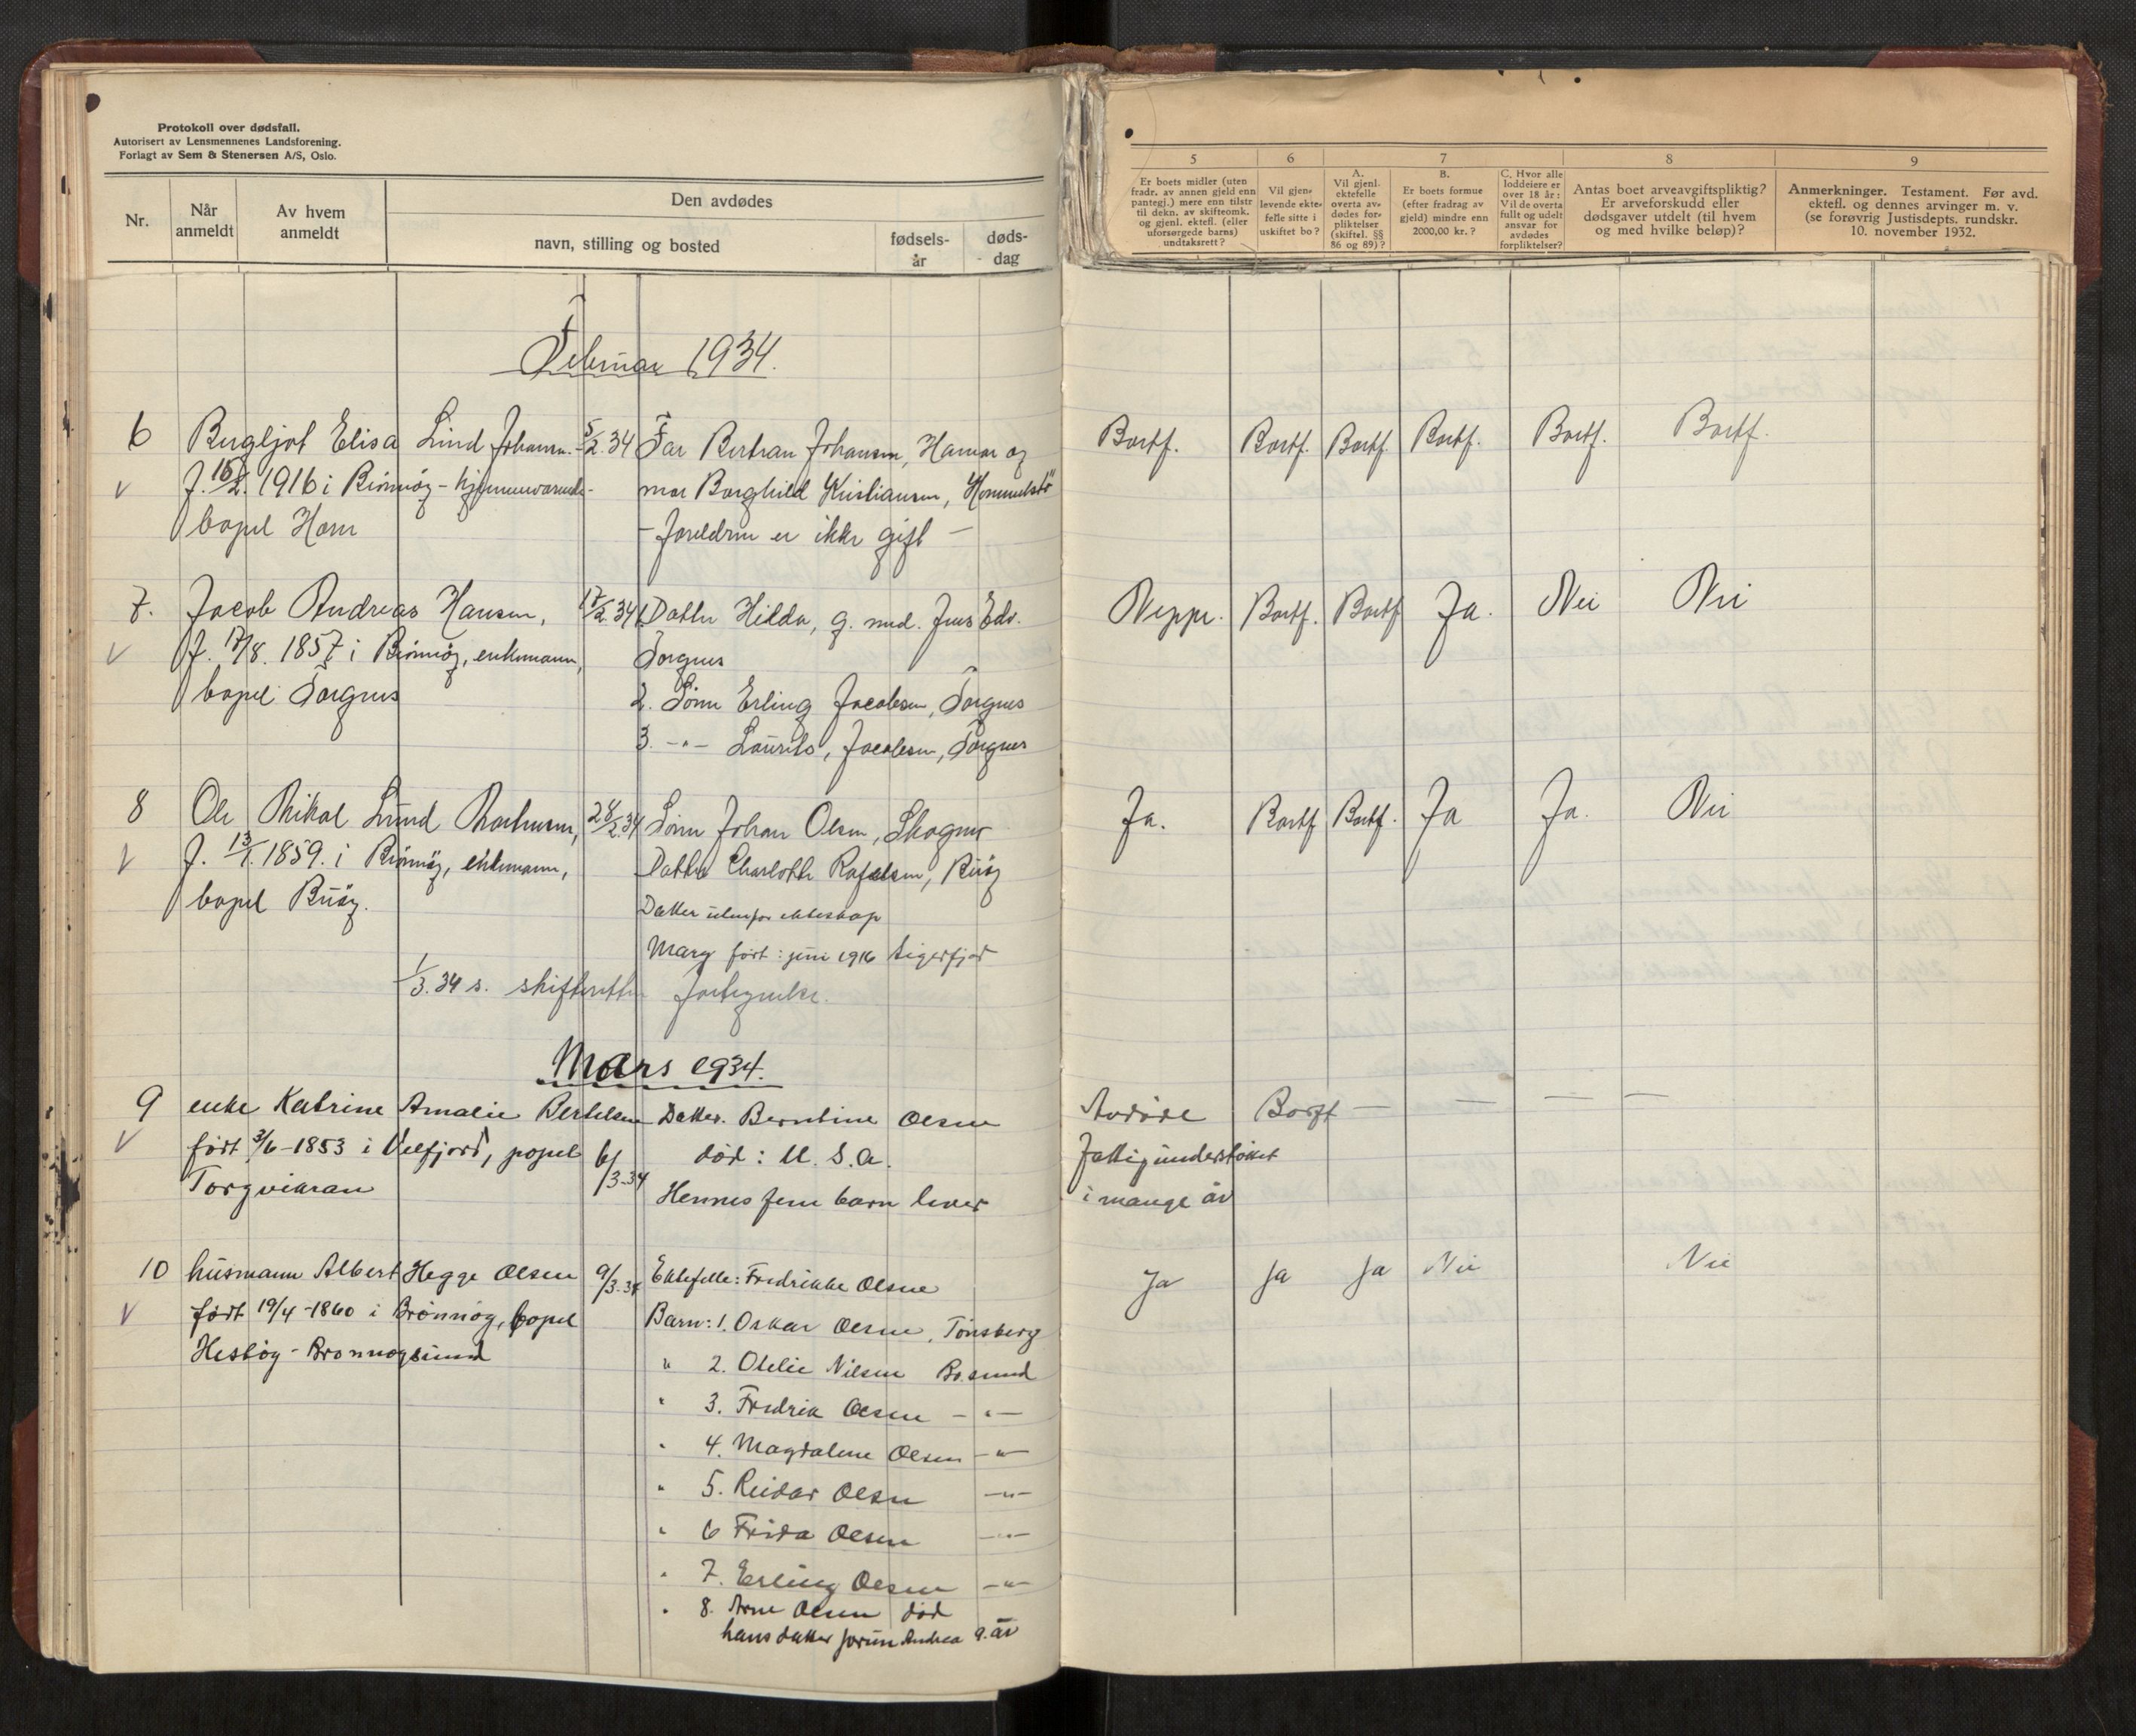 Protokoll over dødsfall.
Autorisert av Lensmennenes Landsforening.
Forlagt av Sem & Stenersen A/S, Oslo.
Nr.
Når anmeldt
Av hvem anmeldt
Den avdødes
navn, stilling og bosted
fødsels-år
døds-dag
5
Er boets midler (uten
fradr. av annen gjeld enn
pantegj.) mere enn tilstr
til dekn. av skifteomk.
og gjenl. ektefl. (eller
uforsørgede barns)
undtaksrett?
6
Vil gjen-
levende ekte-
felle sitte i
uskiftet bo?
7
A.
Vil gjenl.
ektefelle
overta av-
dødes for-
pliktelser
(skiftel. §§
86 og 89)?
B.
Er boets formue
(efter fradrag av
gjeld) mindre enn
2000,00 kr.?
C. Hvor alle
loddeiere er
over 18 år:
Vil de overta
fullt og udelt
ansvar for
avdødes
forpliktelser?
8
Antas boet arveavgiftspliktig?
Er arveforskudd eller
dødsgaver utdelt (til hvem
og med hvilke beløp)?
9
Anmerkninger. Testament. Før avd.
ektefl. og dennes arvinger m. v.
(se forøvrig Justisdepts. rundskr.
10. november 1932.
Februar 1934.
6 Bergljot Elisa Lind Johansen. 5/2.34 Far Bertran Johansen, Hamar og
f. 16/2. 1916 i Brönnöy - hjemmeværende - mor Borghild Kristiansen,
bopel Horn - foreldrene er ikke gift -
Bortf. Bortf. Bortf. Bortf. Bortf. Bortf.
7. Jacob Andreas Hansen, 17/2.34 1. Datter Hilda, g. med. Jens Edv.
f. 17/8. 1857 i Brönnöy, enkemann, Torgnes
bopel Torgnes 2. Sönn Erling Jacobsen, Torgnes
3. -"- Laurits, Jacobsen, Torgnes
Neppe. Bortf. Bortf Ja. Nei Nei
8 Ole Mikal Lund 28/2.34 Sönn Johan Olsen,
f. 13/1. 1859. i Brönnöy, enkemann, Datter Charlotte Rafaelsen,
bopel Datter utenfor ekteskap
Mary født: juni 1916 Sigerfjord
1/3.34 s. skifteretten fortegnelse.
Ja. Bortf Bortf. Ja Ja. Nei
Mars 1934.
9 enke Katrine Amalie Bertelsen Datter. Berntine Olsen
født 3/6-1853 i Velfjord, popel 6/3-34 död: U. S. a.
Torgvikran Hennes fem barn lever
Avdöde Bortf — — — —
fattigunderstöttet
i mange år
10 husmann Albert Hegge Olsen 9/3.34 Ektefelle: Fredrikke Olsen
født 19/4-1860 i Brönnöy, bopel Barn: 1. Oskar Olsen, Tönsberg
Hestöy - Brönnöysund " 2. Otelie Nilsen Br.sund
" 3. Fredrik Olsen -"-
" 4. Magdalene Olsen -"-
" 5. Reidar Olsen -"-
" 6 Frida Olsen -"-
" 7. Erling Olsen -"-
" 8. Arne Olsen död
hans datter Jorun Andrea 9. år
Ja Ja Ja Nei Nei